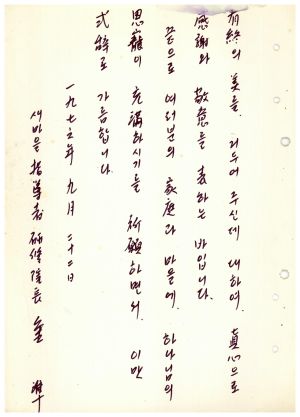 有終의 美를 거두어 주신데 대하여 眞心으로
感謝와 敬意를 表하는 바입니다.
끝으로 여러분의 家庭과 마을에 하나님의
恩寵이 充滿하시기를 祈願하면서 이만
式辭로 가름합니다.
一九七三年 九月 二十二日
새마을 指導者 研修院長 金 準